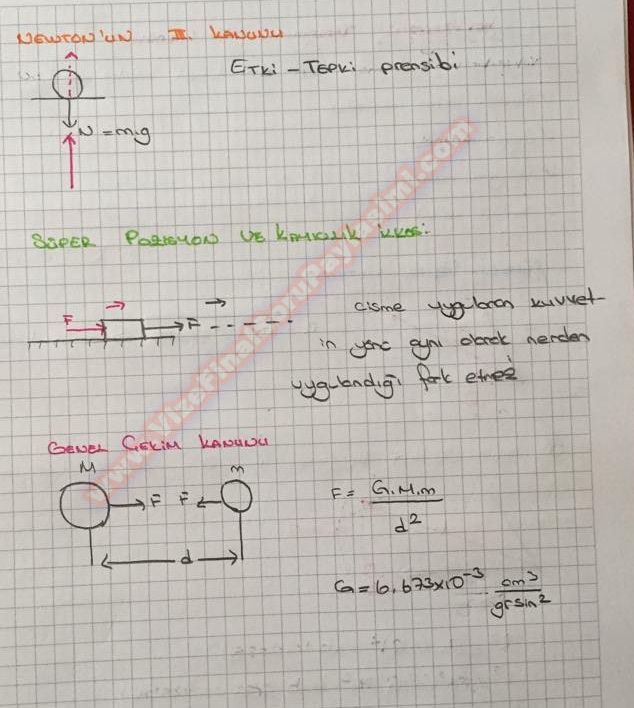 NEWTON'UN III. KANUNU
ETKİ - TEPKİ prensibi
N = m.g
SÜPER POZİSYON VE KAYICILIK İLKESİ:
F
F
cisme uygulanan kuvvet-
in yönü aynı olarak nerden
uygulandığı fark etmez
GENEL ÇEKİM KANUNU
M m
F F
d
F = G.M.m
d²
G = 6.673x10⁻³ cm³
gr sin²
www.VizeFinalSoruPaylasimi.com